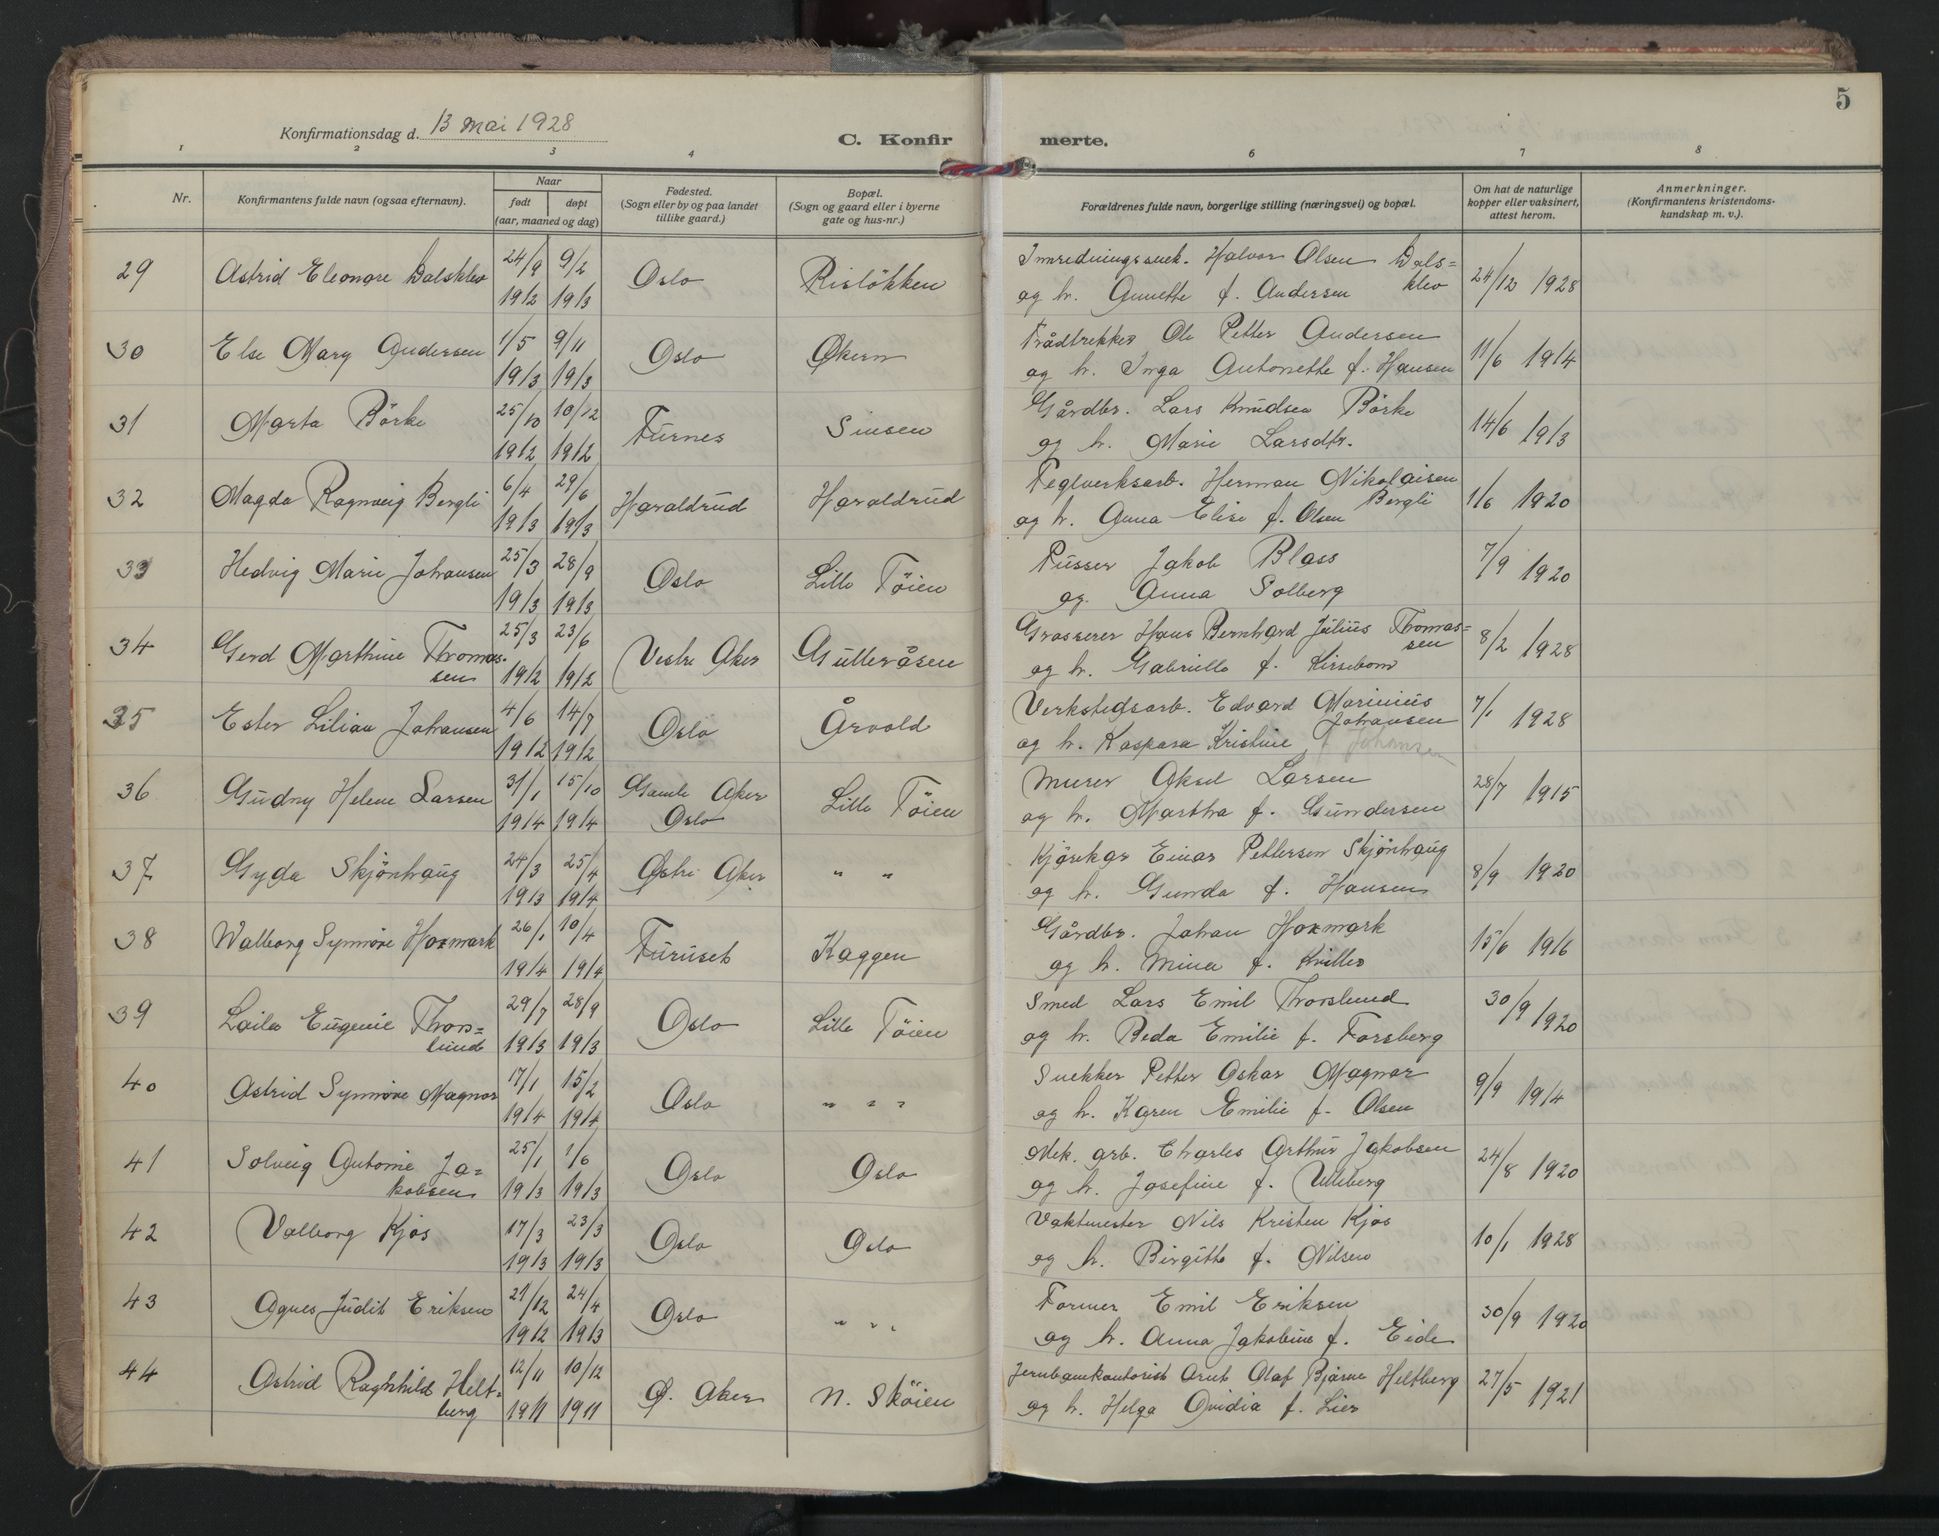 5
Konfirmationsdag d. 13 mai 1928
C. Konfir merte.
1 2 3 4 6 7 8
Nr. Konfirmantens fulde navn (ogsaa efternavn). Naar født døpt (aar, maaned og dag) Fødested. (Sogn eller by og paa landet tillike gaard.) Bopæl. (Sogn og gaard eller i byerne gate og hus-nr.) Forældrenes fulde navn, borgerlige stilling (næringsvei) og bopæl. Om hat de naturlige kopper eller vaksinert, attest herom. Anmerkninger. (Konfirmantens kristendoms-kundskap m. v.).
29 Astrid Eleonore Dalsklev 24/9 1912 9/2 1913 Oslo Risløkken Innredningssnek. Halvor Olsen Dals=klev 24/12 1928
og h. Annette f. Andersen
30 Else Mary Andersen 1/5 1913 9/11 1913 Oslo Økern Trådtrekker Ole Petter Andersen 11/6 1914
og h. Inga Antonette f. Hansen
31 Marta Börke 25/10 1912 10/12 1912 Furnes Sinsen Gårdbr. Lars Knudsen Börke 14/6 1913
og h. Marie Larsdtr.
32 Magda Ragnveig Bergli 6/4 1913 29/6 1913 Haraldrud Haraldrud Teglverksarb. Herman Nikolaisen Bergli 1/6 1920
og h. Anna Elise f. Olsen
33 Hedvig Marie Johansen 25/3 1913 28/9 1913 Oslo Lille Töien Pusser Jakob Blass 7/9 1920
og Anna Solberg
34 Gerd Marthine Thomas-sen 25/3 1912 23/6 1912 Vestre Aker Gulleråsen Grosserer Hans Bernhard Julius Thomas=sen 8/2 1928
og h. Gabrielle f. Kirsebom
35 Ester Lilian Johansen 4/6 1912 14/7 1912 Oslo Årvold Verkstedsarb. Edvard Marinius Johansen 7/1 1928
og h. Kaspara Kristine f Johansen
36 Gudny Helene Larsen 31/1 1914 15/10 1914 Gamle Aker Oslo Lille Töien Murer Aksel Larsen 28/7 1915
og h. Martha f. Gundersen
37 Gyda Skjönhaug 24/3 1913 25/4 1914 Østre Aker " " Kjörekar Einar Pettersen Skjönhaug 8/9 1920
og h. Gunda f. Hansen
38 Walborg Synnöve Hoxmark 26/1 1914 10/4 1914 Furuset Kaggen Gårdbr. Johan Hoxmark 15/6 1916
og h. Mina f. Kviller
39 Laila Eugenie Thors=lund 29/7 1913 28/9 1913 Oslo Lille Töien Smed Lars Emil Thorslund 30/9 1920
og h. Beda Emilie f. Forsberg
40 Astrid Synnöve Magnor 17/1 1914 15/2 1914 Oslo " " " Snekker Petter Oskar Magnor 9/9 1914
og h. Karen Emilie f. Olsen
41 Solveig Antonie Ja=kobsen 25/1 1913 1/6 1913 Oslo Oslo Mek. arb. Charles Arthur Jakobsen 24/8 1920
og h. Josefine f. Ulleberg
42 Valborg Kjos 17/3 1913 23/3 1913 Oslo Oslo Vaktmester Nils Kristen Kjos 10/1 1928
og h. Birgitte f. Nilsen
43 Agnes Judit Eriksen 21/12 1912 24/4 1913 Oslo " " " Former Emil Eriksen 30/9 1920
og h. Anna Jakobine f. Eide
44 Astrid Raghnhild Helt-berg 12/11 1911 10/12 1911 Ø. Aker N. Sköien Jernbanekontorist Arnt Olaf Bjarne Heltberg 27/5 1921
og h. Helga Ovidia f. Lier